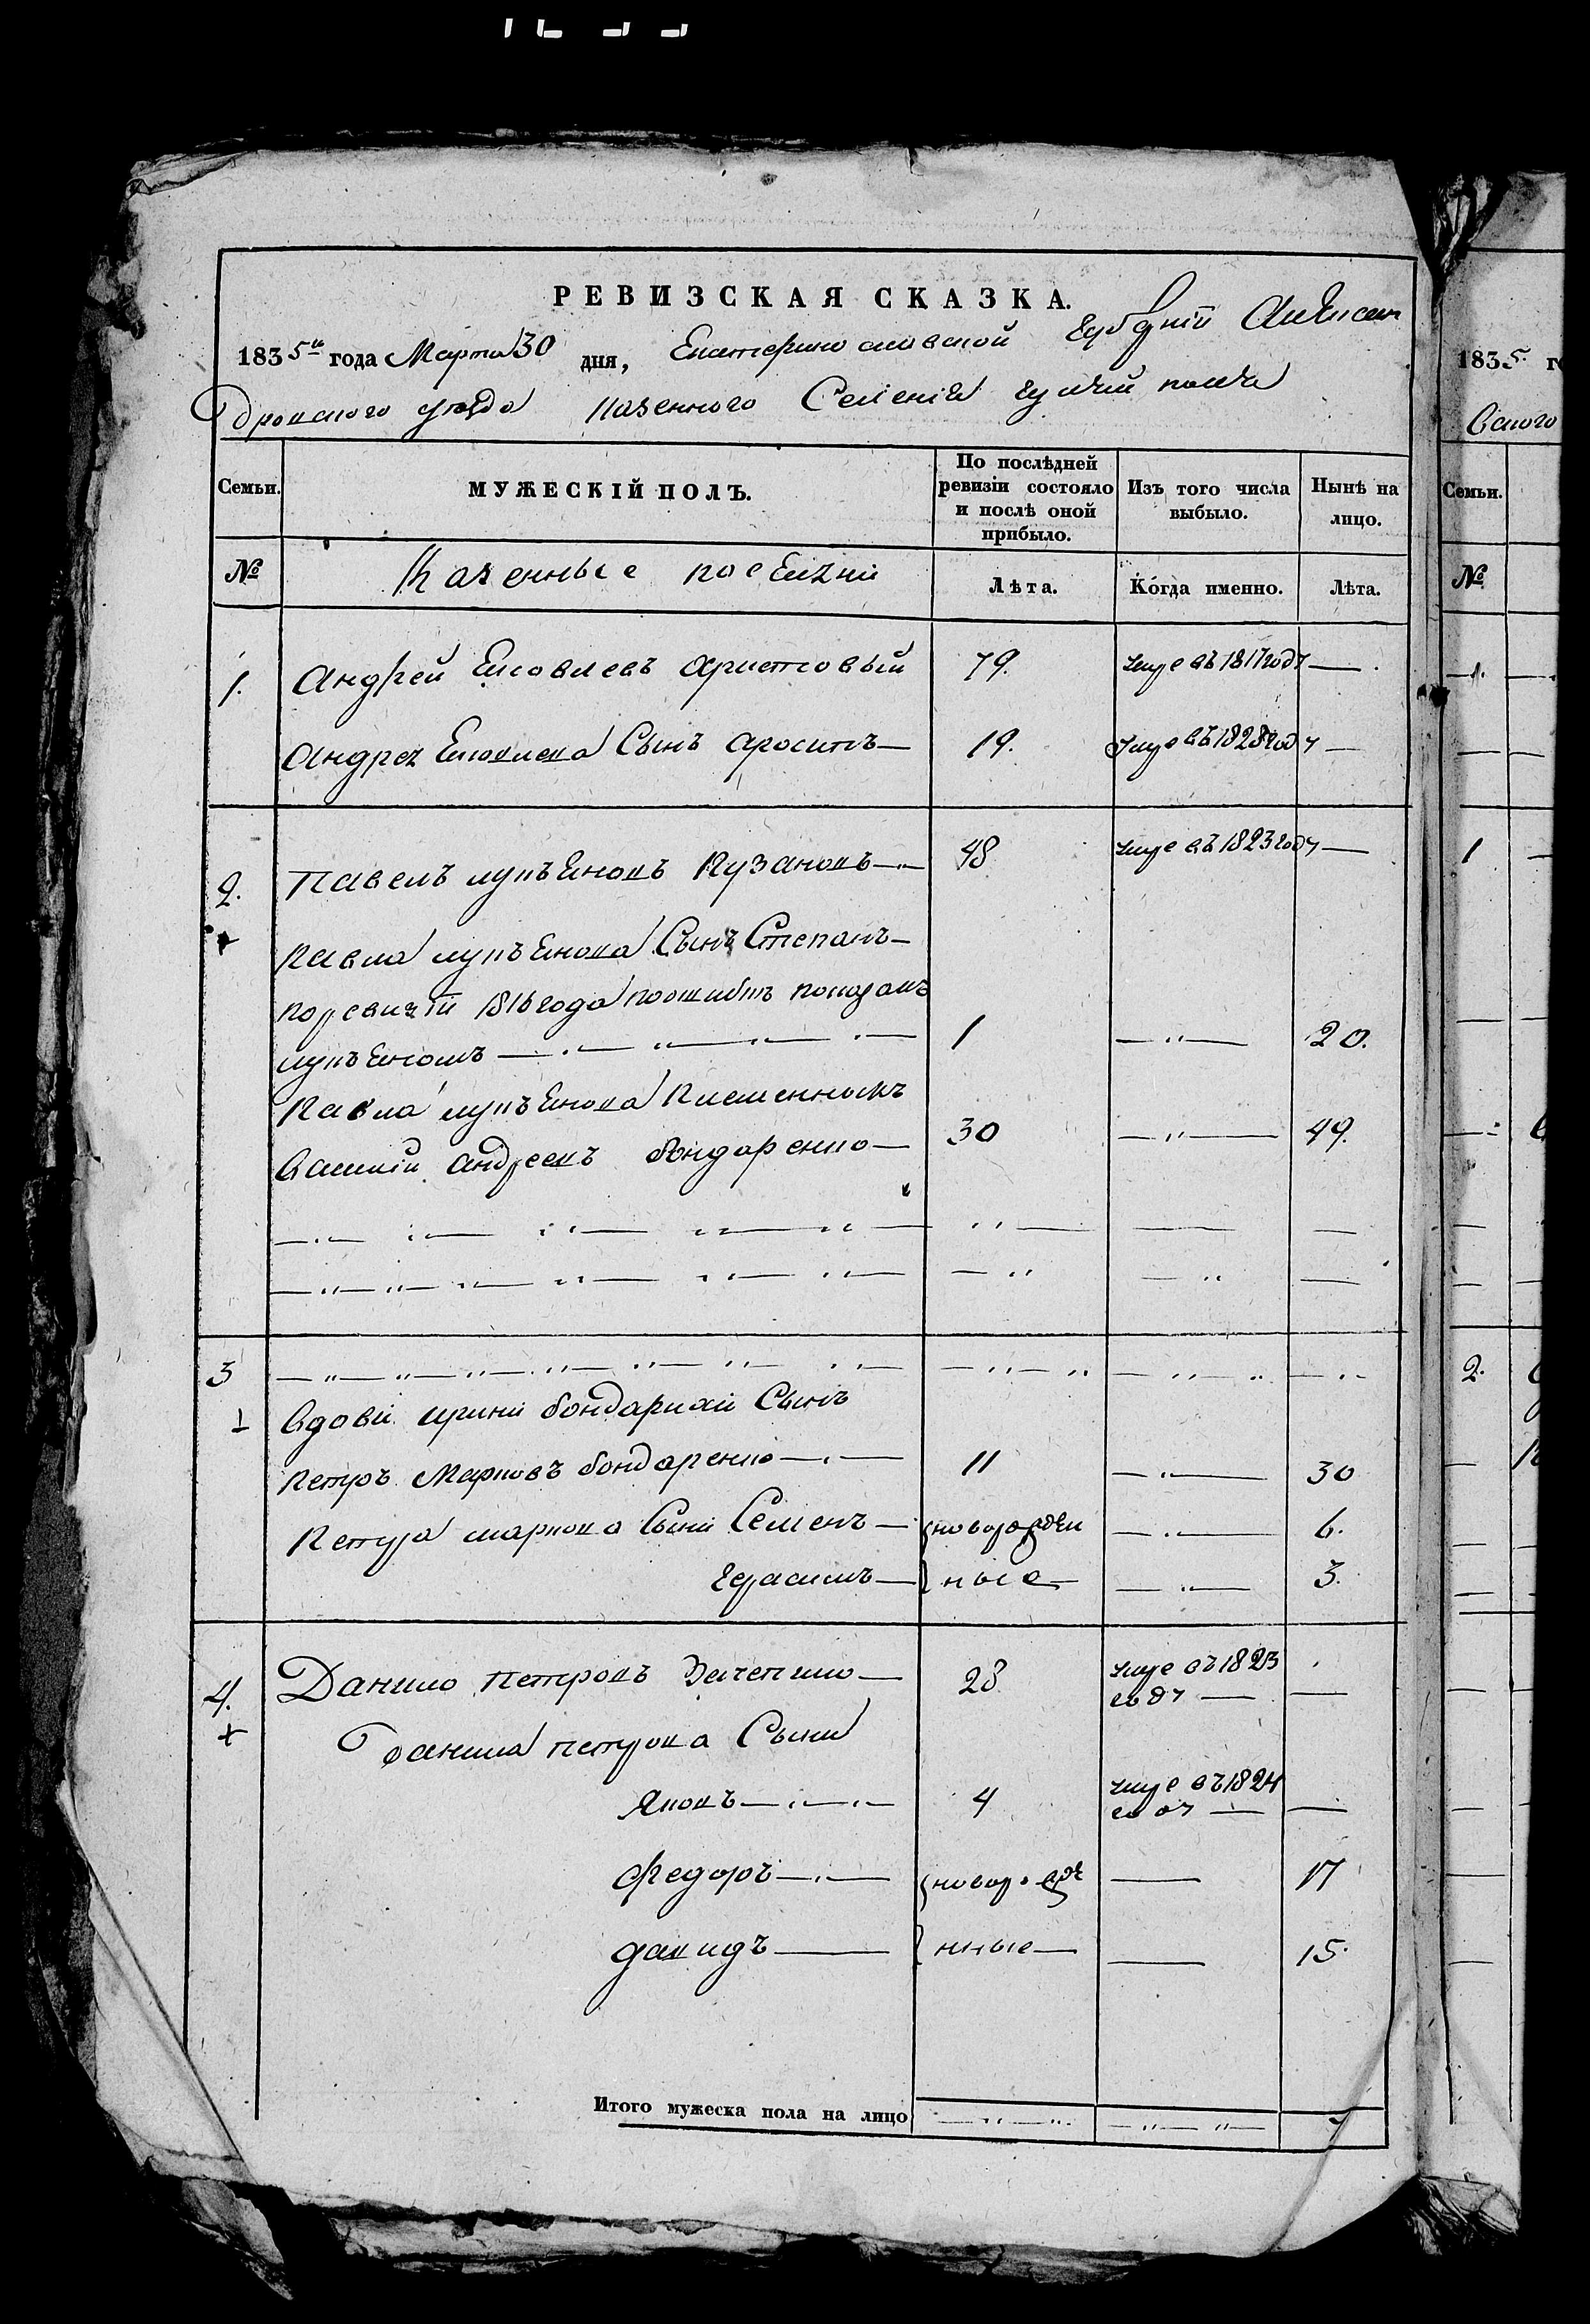 РЕВИЗСКАЯ СКАЗКА.
1835го года Марта 30 дня, Екатеринославской Губернїи Александ
1835. го
дровского уезда казенного Селенїя гуляй поля
вского
Семьи. МУЖЕСКІЙ ПОЛЪ. По послѣдней ревизіи состояло и послѣ оной прибыло. Изъ того числа выбыло. Нынѣ на лицо. Семьи.
№ Казенные поселяни Лѣта. Когда именно. Лѣта. №
1. Андрей Яковлевъ 79. умре въ 1817 году — 1.
Андрея Яковлева Сынъ — 19. умре въ 1828 году —
2. Павелъ лукъяновъ Кузановъ — 48 умре въ 1823 году — 1
Павла лукъянова Сынъ Степанъ —
поревизїи 1816 года показанъ
лукъяномъ — 1 — 20.
Павла лукъянова племенникъ
василїй андреевъ бондаренко — 30 — 49.
3 2.
вдовы ирины бондарихи Сынъ
Петръ Марковъ бондаренко — 11 — 30
Петра маркова Сыни Семенъ — новорожден — 6.
Герасимъ — ные — 3.
4. Данило петровъ Зачепило — 28 умре въ 1823
году — —
данила петрова Сыни
Яковъ — 4 умре въ 1824
году — —
федоръ — новорожде — 17
давидъ — нные — 15.
Итого мужеска пола на лицо